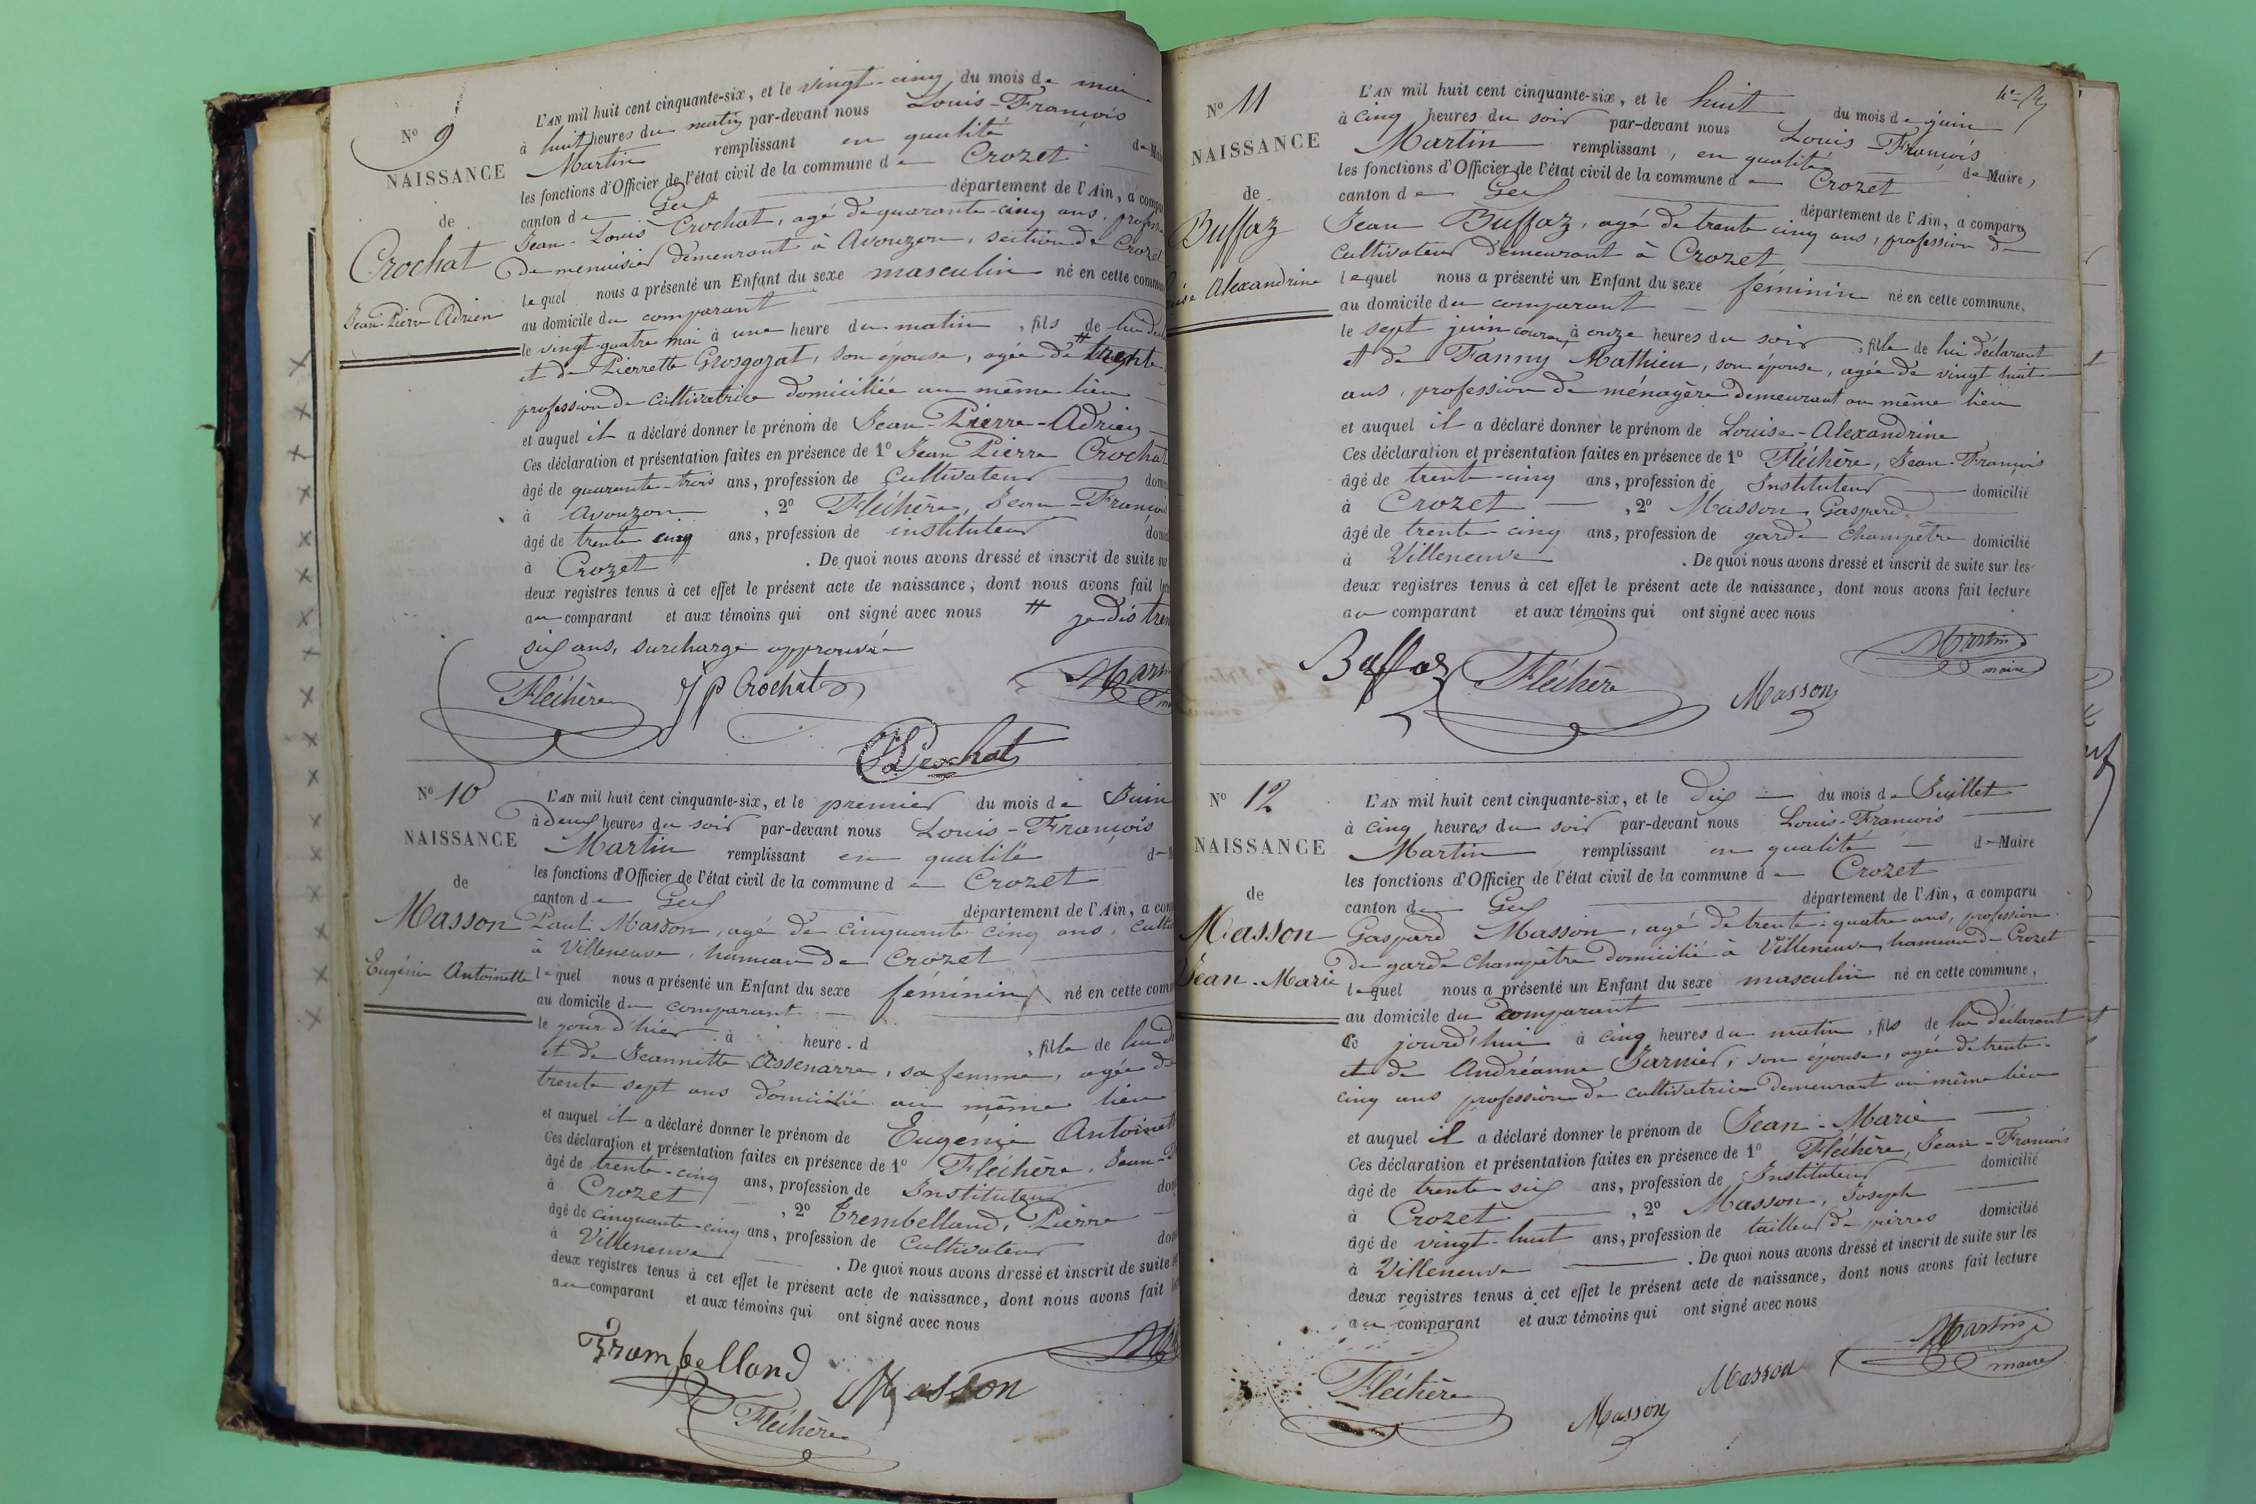 N° 9
NAISSANCE
de
Crochat
Jean Pierre Adrien
L'AN mil huit cent cinquante-six, et le vingt-cinq du mois de mai
à huit heures du matin par-devant nous Louis-François
Martin remplissant en qualité de Mai
les fonctions d'Officier de l'état civil de la commune de Crozet
canton de Gex département de l'Ain, a compa
Jean-Louis Crochat, agé de quarante-cinq ans, profess
de menuisier demeurant à Avouzon, section de Crozet
lequel nous a présenté un Enfant du sexe masculin né en cette commu
au domicile du comparant
le vingt-quatre mai à une heure du matin, fils de lui
et de Pierrette Grosgojat, son épouse, agée de # trente
profession de cultivatrice domiciliée au même lieu
et auquel il a déclaré donner le prénom de Jean-Pierre-Adrien
Ces déclaration et présentation faites en présence de 1° Jean Pierre Crochat
âgé de quarante-trois ans, profession de Cultivateur domi
à Avouzon, 2° Fléchère, Jean-François
âgé de trente cinq ans, profession de instituteur domi
à Crozet. De quoi nous avons dressé et inscrit de suite sur
deux registres tenus à cet effet le présent acte de naissance, dont nous avons fait lec
au comparant et aux témoins qui ont signé avec nous # je dis tren
six ans, surcharge approuvée
Fléchère J P Crochat Martin
Crochat
N° 10
NAISSANCE
de
Masson
Eugénie Antoinette
L'AN mil huit cent cinquante-six, et le premier du mois de Juin
à deux heures du soir par-devant nous Louis-François
Martin remplissant en qualité de M
les fonctions d'Officier de l'état civil de la commune de Crozet
canton de Gex département de l'Ain, a com
Paul Masson, agé de cinquante cinq ans, culti
à Villeneuve, hameau de Crozet
lequel nous a présenté un Enfant du sexe féminin né en cette comm
au domicile du comparant
le jour d'hier à heure d, fille de lui dé
et de Jeannette Assenarre, sa femme, agée de
trente sept ans domicilié au même lieu
et auquel il a déclaré donner le prénom de Eugénie Antoinett
Ces déclaration et présentation faites en présence de 1° Fléchère, Jean-F
âgé de trente-cinq ans, profession de Instituteur dom
à Crozet, 2° Trembelland, Pierre
âgé de cinquante-cinq ans, profession de Cultivateur dom
à Villeneuve. De quoi nous avons dressé et inscrit de suite
deux registres tenus à cet effet le présent acte de naissance, dont nous avons fait
au comparant et aux témoins qui ont signé avec nous
Trembelland Masson
Fléchère
N° 11
NAISSANCE
de
Buffaz
Louise Alexandrine
L'AN mil huit cent cinquante-six, et le huit du mois de juin
à cinq heures du soir par-devant nous Louis-François
Martin remplissant, en qualité de Maire,
les fonctions d'Officier de l'état civil de la commune de Crozet
canton de Gex département de l'Ain, a comparu
Jean Buffaz, agé de trente cinq ans, profession de
cultivateur demeurant à Crozet
lequel nous a présenté un Enfant du sexe féminin né en cette commune,
au domicile du comparant
le sept juin courant à onze heures du soir, fille de lui déclarant
et de Fanny Mathieu, son épouse, agée de vingt huit
ans, profession de ménagère demeurant au même lieu
et auquel il a déclaré donner le prénom de Louise-Alexandrine
Ces déclaration et présentation faites en présence de 1° Fléchère, Jean-François
âgé de trente-cinq ans, profession de Instituteur domicilié
à Crozet, 2° Masson, Gaspard
âgé de trente-cinq ans, profession de garde champêtre domicilié
à Villeneuve. De quoi nous avons dressé et inscrit de suite sur les
deux registres tenus à cet effet le présent acte de naissance, dont nous avons fait lecture
au comparant et aux témoins qui ont signé avec nous
Buffaz Fléchère Masson Martin
maire
N° 12
NAISSANCE
de
Masson
Jean-Marie
L'AN mil huit cent cinquante-six, et le dix du mois de Juillet
à cinq heures du soir par-devant nous Louis-François
Martin remplissant en qualité de Maire
les fonctions d'Officier de l'état civil de la commune de Crozet
canton de Gex département de l'Ain, a comparu
Gaspard Masson, agé de trente-quatre ans, profession
de garde champêtre domicilié à Villeneuve, hameau de Crozet
lequel nous a présenté un Enfant du sexe masculin né en cette commune,
au domicile du comparant
Ce jourd'hui à cinq heures du matin, fils de lui déclarant
et de Andréanne Jarnier, son épouse, agée de trente-
cinq ans profession de cultivatrice demeurant au même lieu
et auquel il a déclaré donner le prénom de Jean-Marie
Ces déclaration et présentation faites en présence de 1° Fléchère, Jean-François
âgé de trente-six ans, profession de Instituteur domicilié
à Crozet, 2° Masson, Joseph
âgé de vingt-huit ans, profession de tailleur de pierres domicilié
à Villeneuve. De quoi nous avons dressé et inscrit de suite sur les
deux registres tenus à cet effet le présent acte de naissance, dont nous avons fait lecture
au comparant et aux témoins qui ont signé avec nous
Fléchère Masson Masson Martin
maire